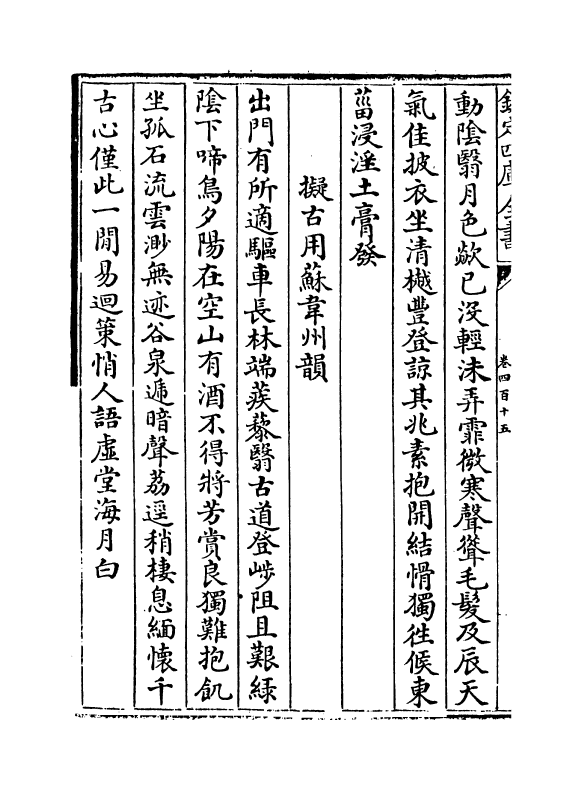 欽定四庫全書
卷四百十五
動陰翳月色歘已没輕洡弄霏微寒聲聳毛髮及辰天
氣佳披衣坐清樾豐登諒其兆素抱開結愲獨徃候東
菑浸淫土膏發
擬古用蘇韋州韻
出門有所適驅車長林端蒺藜翳古道登陟阻且艱緑
陰下啼鳥夕陽在空山有酒不得將芳賞良獨難抱飢
坐孤石流雲渺無迹谷泉遞暗聲荔逕稍棲息緬懷千
古心僅此一閒易迴策悄人語虛堂海月白